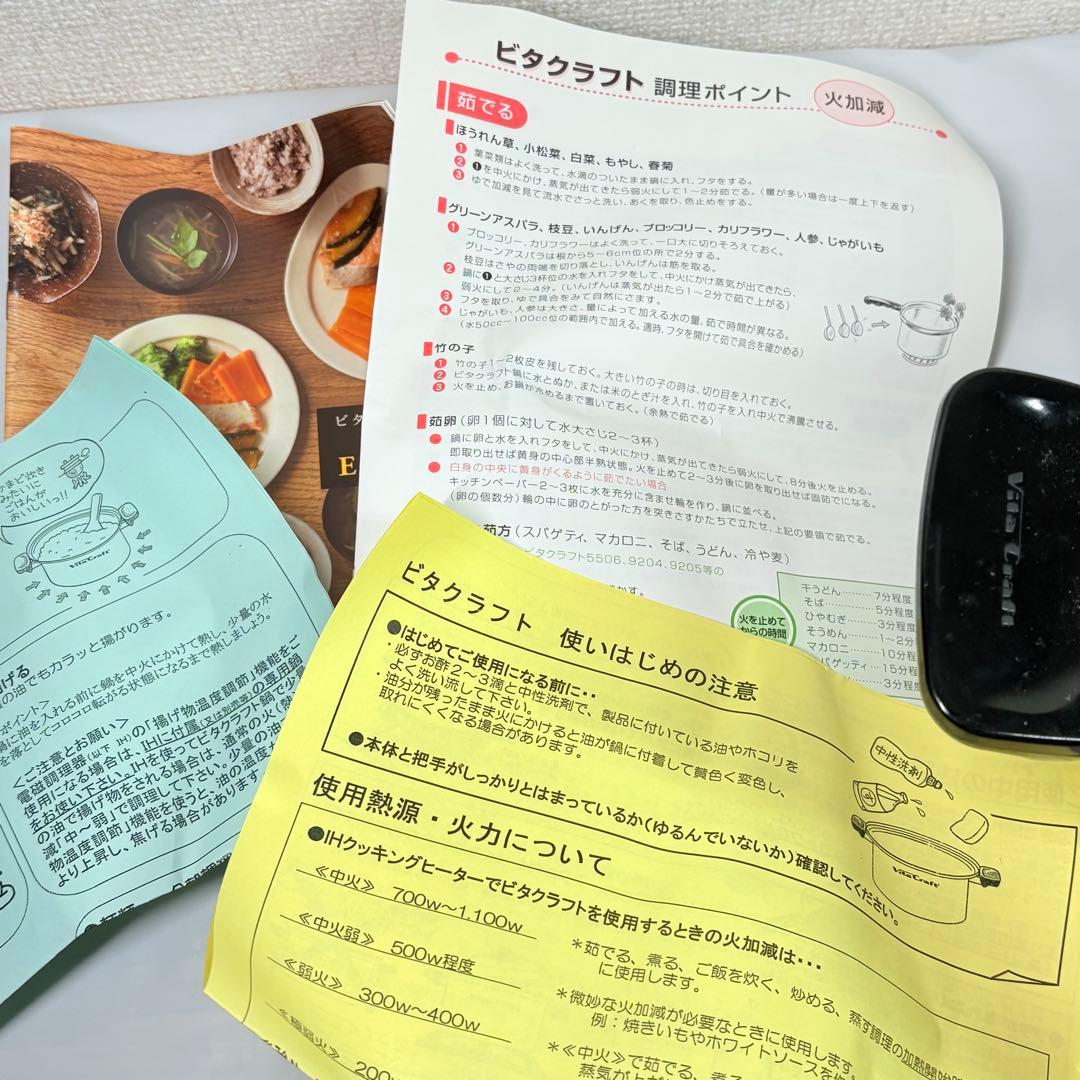 ビタクラフト 調理ポイント 火加減
茹でる
ほうれん草、小松菜、白菜、もやし、春菊
❶ 葉菜類はよく洗って、水滴のついたまま鍋に入れ、フタをする。
❷ ❶を中火にかけ、蒸気が出てきたら弱火にして1〜2分茹でる。(量が多い場合は一度上下を返す)
❸ ゆで加減を見て流水でさっと洗い、あくを取り、色止めをする。
グリーンアスパラ、枝豆、いんげん、ブロッコリー、カリフラワー、人参、じゃがいも
❶ ブロッコリー、カリフラワーはよく洗って、一口大に切りそろえておく。
グリーンアスパラは根から5〜6cm位の所で2分する。
枝豆はさやの両端を切り落とし、いんげんは筋を取る。
❷ 鍋に❶と大さじ3杯位の水を入れフタをして、中火にかけ蒸気が出てきたら、
弱火にして2〜4分。(いんげんは蒸気が出たら1〜2分で茹で上がる)
❸ フタを取り、ゆで具合をみて自然にさます。
❹ じゃがいも、人参は大きさ、量によって加える水の量、茹で時間が異なる。
(水50cc〜100cc位の範囲内で加える。適時、フタを開けて茹で具合を確かめる)
竹の子
❶ 竹の子1〜2枚皮を残しておく。大きい竹の子の時は、切り目を入れておく。
❷ ビタクラフト鍋に水とぬか、または米のとぎ汁を入れ、竹の子を入れ中火で沸騰させる。
❸ 火を止め、お鍋が冷めるまで置いておく。(余熱で茹でる)
茹卵(卵1個に対して水大さじ2〜3杯)
● 鍋に卵と水を入れフタをして、中火にかけ、蒸気が出てきたら弱火にして、8分後火を止める。
即取り出せば黄身の中心部半熟状態。火を止めて2〜3分後に卵を取り出せば固茹でになる。
● 白身の中央に黄身がくるように茹でたい場合
キッチンペーパー2〜3枚に水を充分に含ませ輪を作り、鍋に並べる。
(卵の個数分)輪の中に卵のとがった方を突きさすかたちで立たせ、上記の要領で茹でる。
茹方(スパゲティ、マカロニ、そば、うどん、冷や麦)
ビタクラフト5506、9204、9205等の
火を止めて
からの時間
干うどん………7分程度
そば…………5分程度
ひやむぎ………3分程度
そうめん………1〜2分
マカロニ………10分程
パゲッティ…15分程
3分程度
Vita Craft
ビタ
E
まど炊き
みたいに
ごはんが
おいしいっ!!
VitaCraft
げる
の油でもカラッと揚がります。
ポイント>
鍋に油を入れる前に鍋を中火にかけて熱し、少量の水
を落としてコロコロ転がる状態になるまで熱しましょう。
<ご注意とお願い>
電磁調理器(以下 IH)の「揚げ物温度調節」機能をご
使用になる場合は、IHに付属(又は別売等)の専用鍋
をお使い下さい。IHを使ってビタクラフト鍋で少
の油で揚げ物をされる場合は、通常の火(熱
減「中〜弱」で調理して下さい。少量の油
物温度調節」機能を使うと、油の温度が
より上昇し、焦げる場合があります
ビタクラフト 使いはじめの注意
●はじめてご使用になる前に‥
・必ずお酢2〜3滴と中性洗剤で、製品に付いている油やホコリを
よく洗い流して下さい。
・油分が残ったまま火にかけると油が鍋に付着して黄色く変色し、
取れにくくなる場合があります。
●本体と把手がしっかりとはまっているか(ゆるんでいないか)確認してください。
中性洗剤
VitaCraft
使用熱源・火力について
●IHクッキングヒーターでビタクラフトを使用するときの火加減は・・・
≪中火≫ 700w〜1,100w
≪中火弱≫ 500w程度
≪弱火≫ 300w〜400w
200w
*茹でる、煮る、ご飯を炊く、炒める、蒸す調理の加熱開始時
に使用します。
*微妙な火加減が必要なときに使用します。
例:焼きいもやホワイトソースを
*≪中火≫で茹でる、煮る、
蒸気が上が